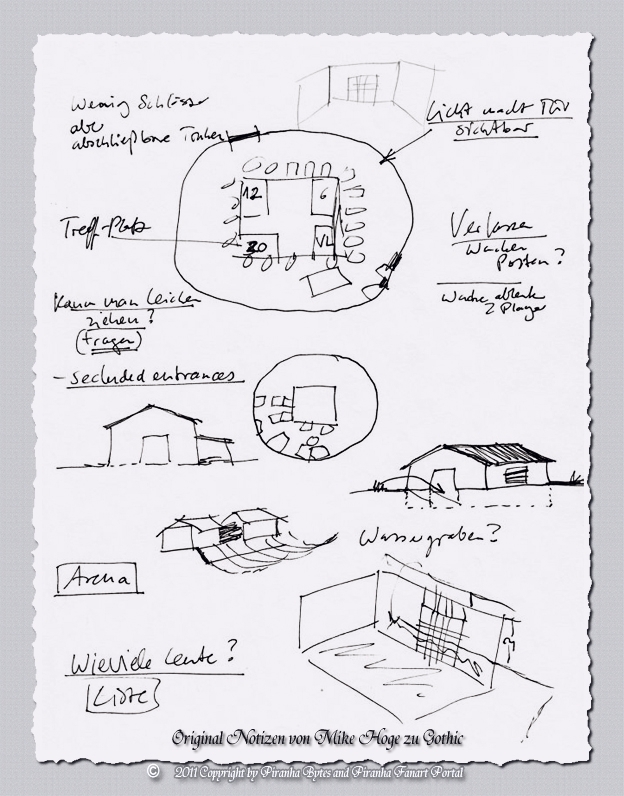 Wenig Schlösser
aber
abschließbare Truhen
Licht macht Tür
sichtbar
12
6
Treff-Platz
20
VL
Verlassen
Wachen
Posten?
Wache ablenken
2 Player
Kann man Leichen
ziehen?
(tragen)
- secluded entrances
Wassergraben?
Arena
Wieviele Leute?
Liste
Original Notizen von Mike Hoge zu Gothic
© 2011 Copyright by Piranha Bytes and Piranha Fanart Portal